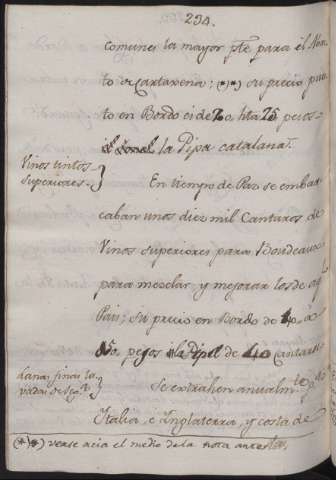 294.
comunes la mayor pte para el Abas-
to de Cartaxena; (*)(*) su precio pues-
to en Bordo es de 20, hta 25 pesos
la Pipa catalana.
Vinos tintos
superiores.
En tiempo de Paz se embar-
caban unos diez mil Cantaros de
Vinos superiores para Bourdeaux
para mezclar, y mejorar los de aql
Pais; su precio en Bordo de 40, a
50, pesos la Pipa de 40 Cantaros
Lanas finas la
vadas de
Se extrahen anualmte pa
Italia, e Inglaterra, y costa de
(*)(*) vease acia el medio de la nota anterior